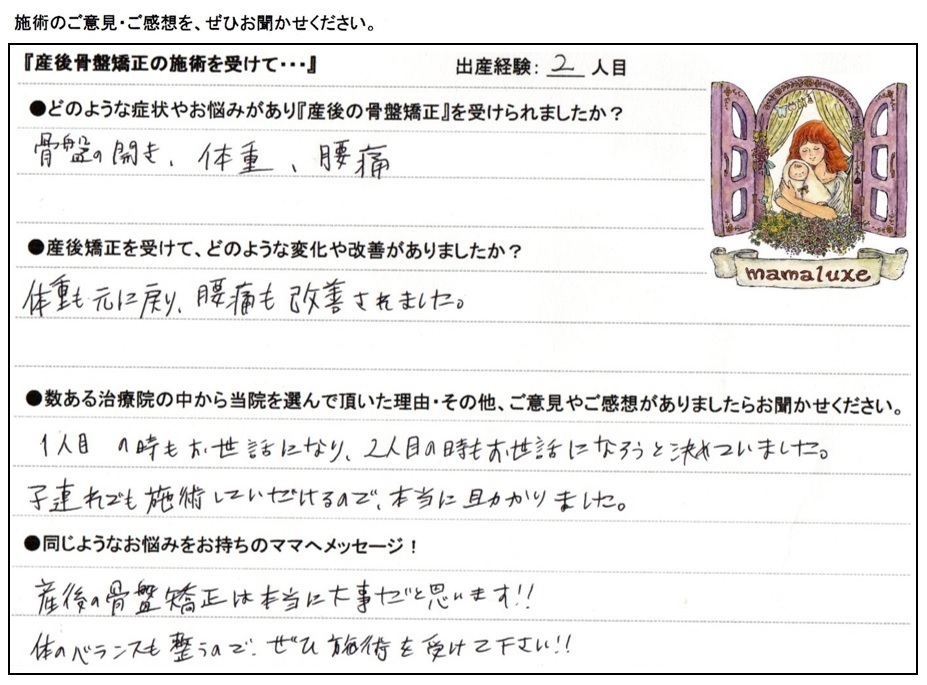 施術のご意見・ご感想を、ぜひお聞かせください。
『産後骨盤矯正の施術を受けて・・・』 出産経験： 2 人目
●どのような症状やお悩みがあり『産後の骨盤矯正』を受けられましたか？
骨盤の開き、体重、腰痛
●産後矯正を受けて、どのような変化や改善がありましたか？
体重も元に戻り、腰痛も改善されました。
mamaluxe
●数ある治療院の中から当院を選んで頂いた理由・その他、ご意見やご感想がありましたらお聞かせください。
1人目 の時もお世話になり、2人目の時もお世話になろうと決めていました。
子連れでも施術していだけるので、本当に助かりました。
●同じようなお悩みをお持ちのママへメッセージ！
産後の骨盤矯正は本当に大事だと思います!!
体のバランスも整うので、ぜひ施術を受けて下さい!!